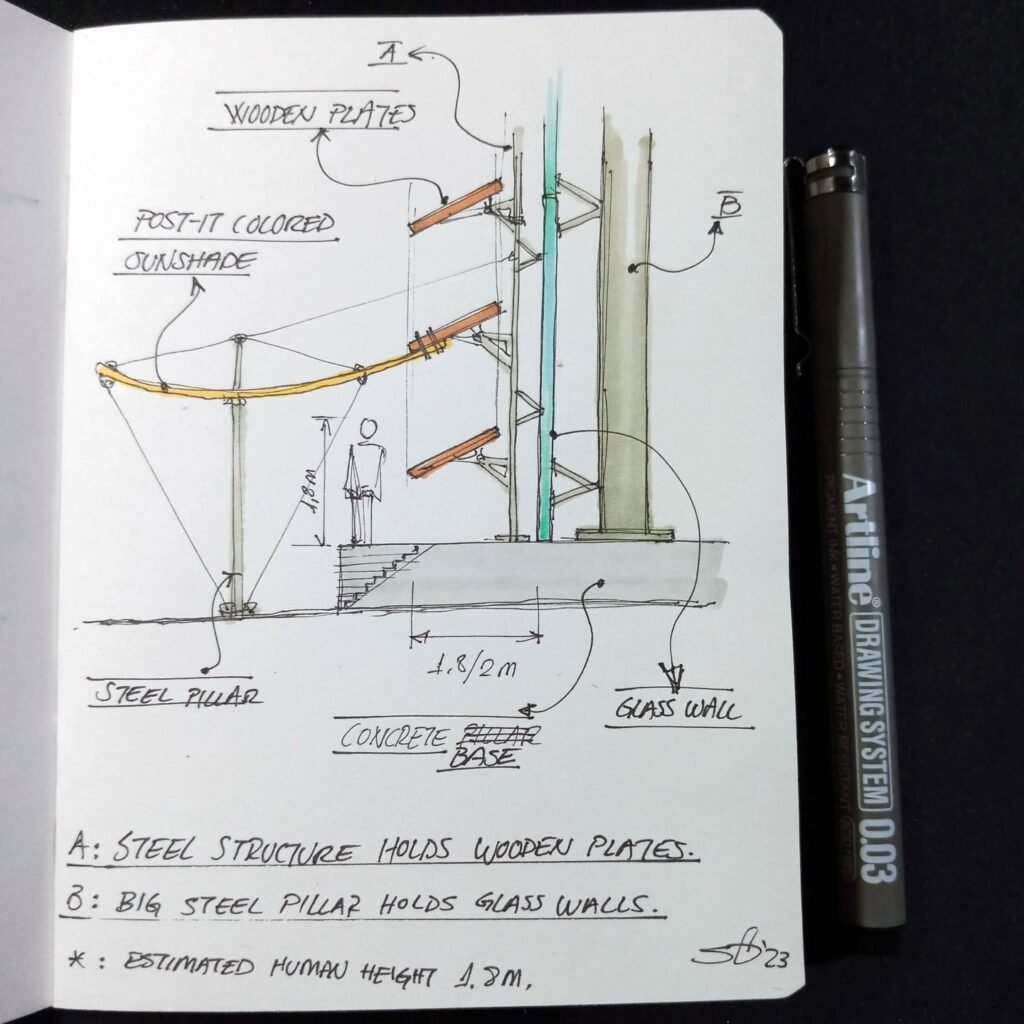 A
WOODEN PLATES
B
POST-IT COLORED
SUNSHADE
1,8M
1.8/2M
STEEL PILLAR
GLASS WALL
CONCRETE PILLAR
BASE
A: STEEL STRUCTURE HOLDS WOODEN PLATES.
B: BIG STEEL PILLAR HOLDS GLASS WALLS.
*: ESTIMATED HUMAN HEIGHT 1.8M.
'23
Artline® DRAWING SYSTEM 0.03
PIGMENT INK • WATER BASED • WATER RESISTANT